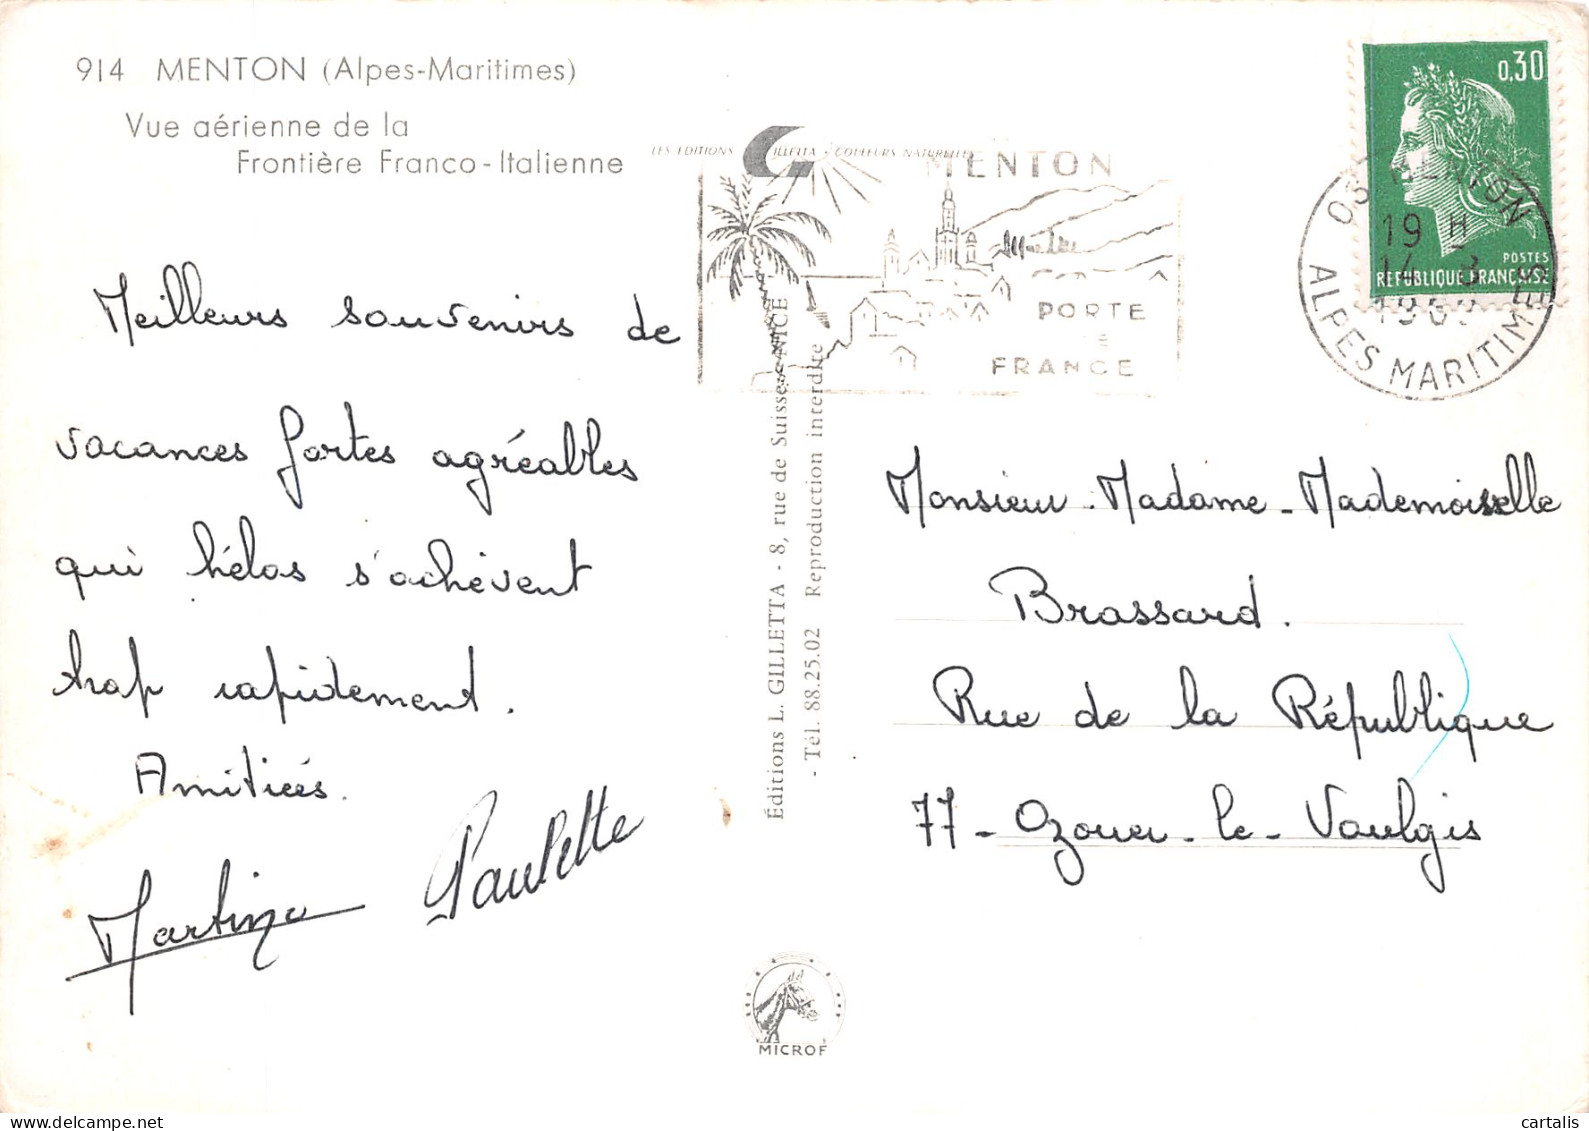 914 MENTON (Alpes-Maritimes)
Vue aérienne de la
Frontière Franco-Italienne
LES EDITIONS GILLETTA - COULEURS NATURELLES
MENTON
PORTE
DE
FRANCE
0,30
POSTES
REPUBLIQUE FRANÇAISE
MENTON
19 H
14 - 3
ALPES MARITIMES
Meilleurs souvenirs de
vacances fortes agréables
qui hélas s'achèvent
trop rapidement.
Amitiés.
Martine Paulette
Éditions L. GILLETTA - 8, rue de Suisse - NICE
- Tél. 88.25.02 Reproduction interdite
Monsieur - Madame - Mademoiselle
Brassard.
Rue de la République
77 - Ozouer - le - Voulgis
MICROF
cartalis
delcampe.net